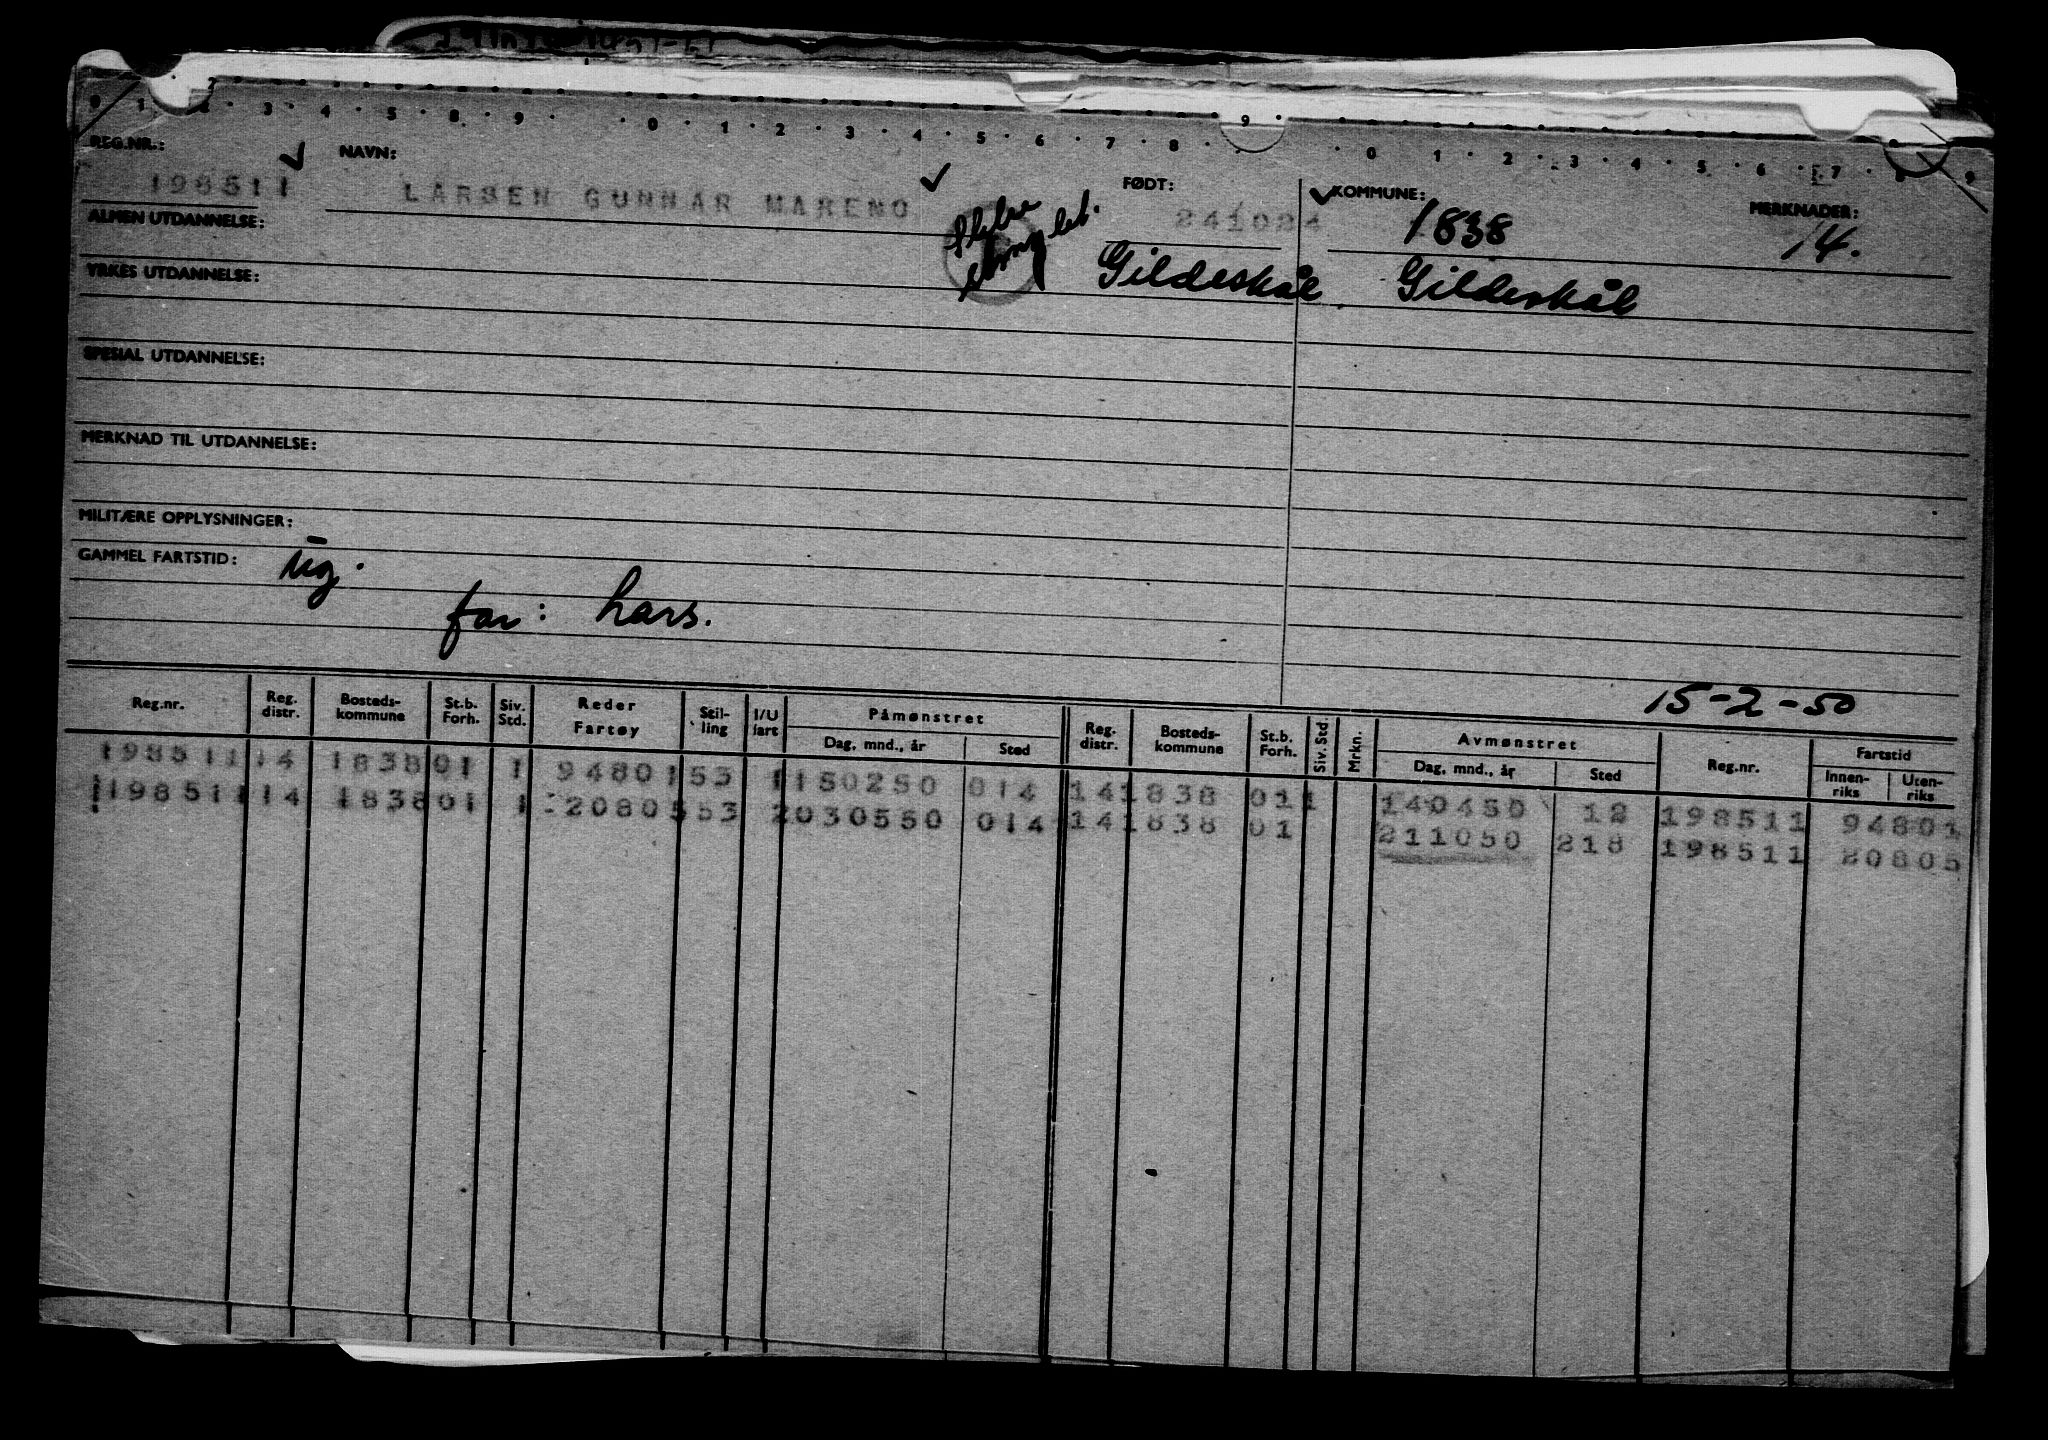 0 1 2 3 4 5 8 9 0 1 2 3 4 5 6 7 8 9 0 1 2 3 4 5 6 7 8 9
REG.NR.: NAVN: FØDT: KOMMUNE: MERKNADER:
198511 LARSEN GUNNAR MARENO 241024 1838 14.
ALMEN UTDANNELSE:
Gildeskål Gildeskål
YRKES UTDANNELSE:
SPESIAL UTDANNELSE:
MERKNAD TIL UTDANNELSE:
MILITÆRE OPPLYSNINGER:
GAMMEL FARTSTID: ug.
far: Lars.
15-2-50
Reg.nr. Reg. distr. Bosteds-kommune St.b. Forh. Siv. Std. Reder Fartøy Stil-ling I/U fart Påmønstret Dag, mnd., år Sted Reg. distr. Bosteds-kommune St.b. Forh. Siv. Std Mrkn. Avmønstret Dag, mnd., år Sted Reg.nr. Fartstid Innen-riks Uten-riks
198511 14 1838 01 1 94801 53 1 150250 014 14 1838 01 1 140450 12 198511 94801
198511 14 1838 01 1 20805 53 2 030550 014 14 1838 01 211050 218 198511 20805